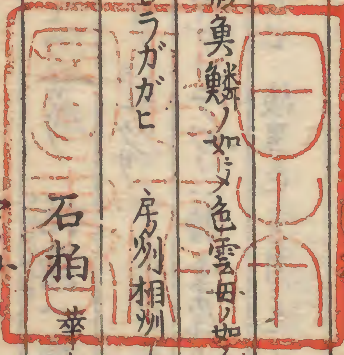 魚鱗ノ如ニメ色雲母ノ如
ラガガヒ 房州相州
石柏